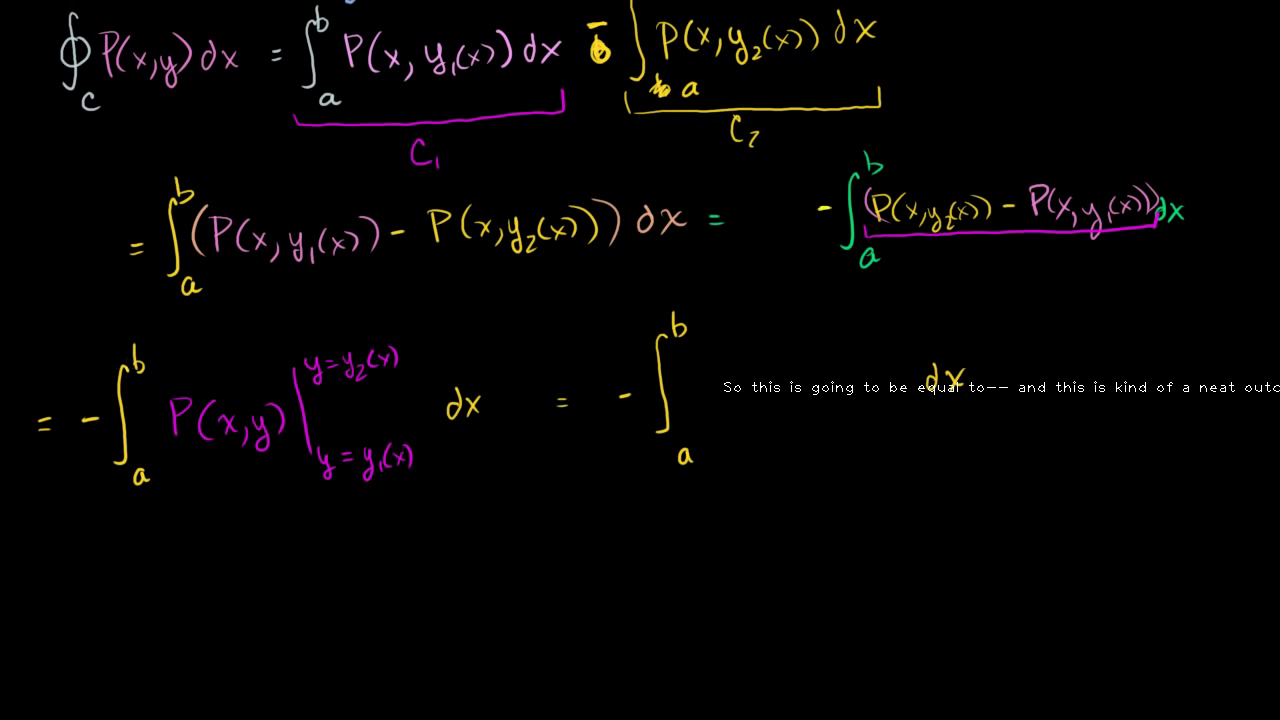 ∮_C P(x,y) dx = ∫_a^b P(x, y₁(x)) dx - ∫_a P(x, y₂(x)) dx
C₁ C₂
= ∫_a^b (P(x, y₁(x)) - P(x, y₂(x))) dx = - ∫_a^b (P(x, y₂(x)) - P(x, y₁(x))) dx
= - ∫_a^b P(x,y) |_{y = y₁(x)}^{y = y₂(x)} dx = - ∫_a^b dx
So this is going to be equal to-- and this is kind of a neat outc